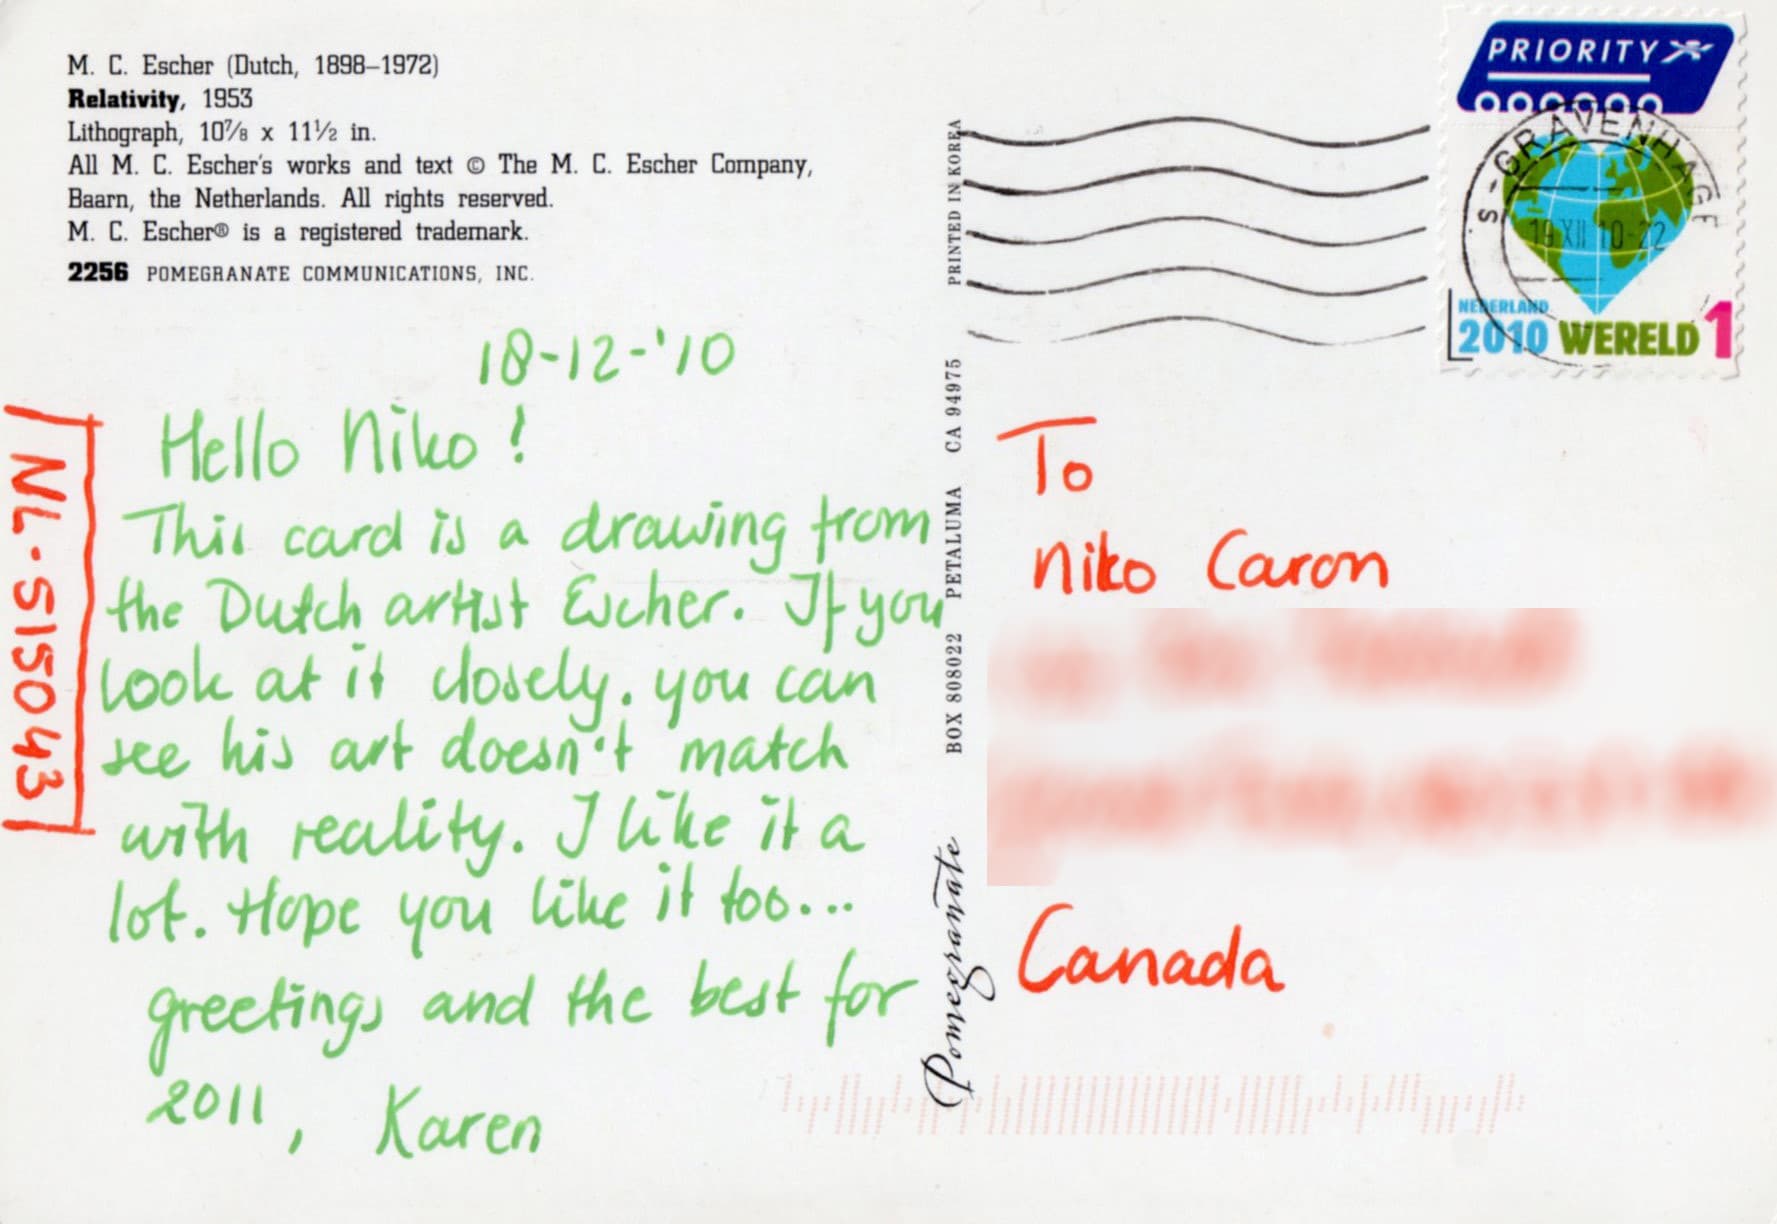 M. C. Escher (Dutch, 1898–1972)
Relativity, 1953
Lithograph, 10⅞ x 11½ in.
All M. C. Escher's works and text © The M. C. Escher Company,
Baarn, the Netherlands. All rights reserved.
M. C. Escher® is a registered trademark.
2256 POMEGRANATE COMMUNICATIONS, INC.
18-12-'10
Hello Niko!
This card is a drawing from
the Dutch artist Escher. If you
look at it closely, you can
see his art doesn't match
with reality. I like it a
lot. Hope you like it too...
greetings and the best for
2011, Karen
NL-515043
Pomegranate BOX 808022 PETALUMA CA 94975 PRINTED IN KOREA
PRIORITY
'S-GRAVENHAGE
19 XII 10-22
NEDERLAND
2010 WERELD 1
To
Niko Caron
Canada